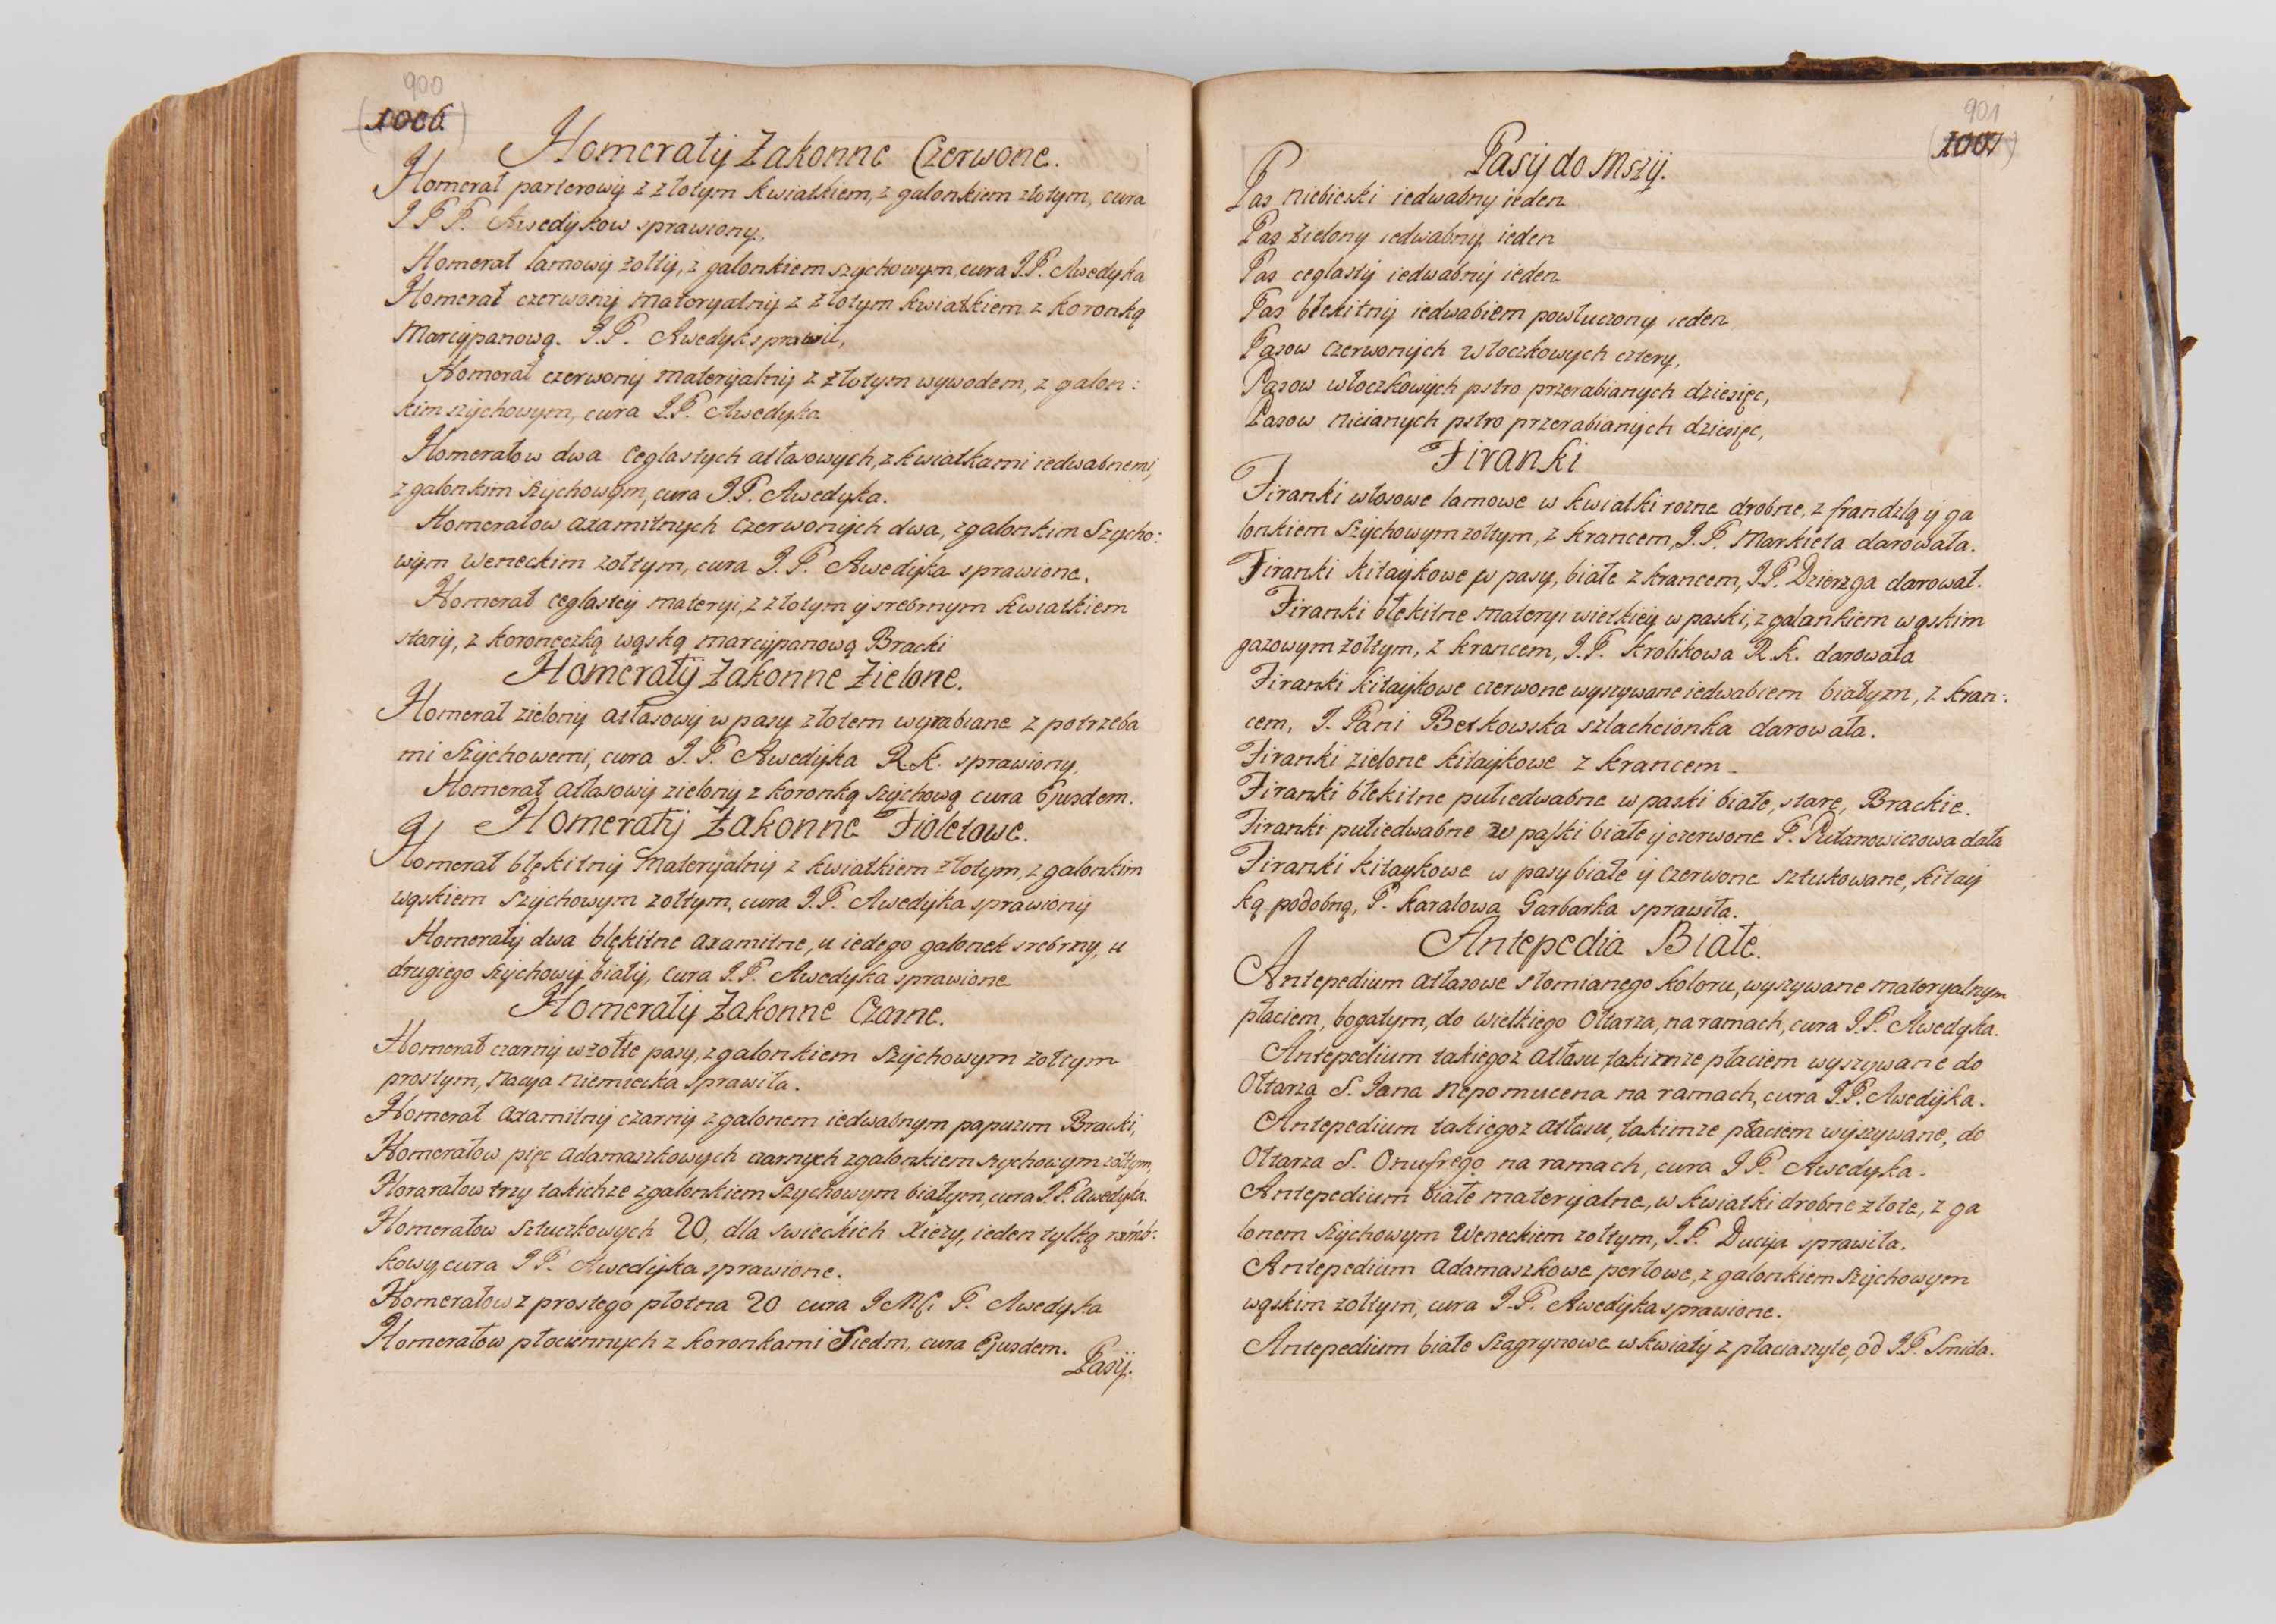 900
1006.
Homerały Zakonne Czerwone.
Homerał parterowy z złotym kwiatkiem, z galonkiem złotym, cura
J P P. Awedykow sprawiony,
Homerał lamowy żołty, z galonkiem szychowym, cura J.P. Awedyka
Homerał czerwony materyalny z złotym kwiatkiem z koronką
Marcypanową. J.P. Awedyk sprawił,
Homerał czerwony materyalny z złotym wywodem, z galon:
kim szychowym, cura J.P. Awedyka
Homerałow dwa Ceglastych atłasowych, z kwiatkami iedwabnemi,
z galonkim szychowym, cura J.P. Awedyka.
Homerałow axamitnych czerwonych dwa, z galonkim Szycho:
wym Weneckim żołtym, cura J.P. Awedyka sprawione.
Homerał ceglastey materyi, z złotym y srebrnym kwiatkiem
stary, z koroneczką wąską marcypanową Bracki
Homerały Zakonne Zielone.
Homerał zielony atłasowy w pasy złotem wyrabiane z potrzeba
mi szychowemi, cura J.P. Awedyka R.K. sprawiony.
Homerał atłasowy zielony z koronką szychową cura Ejusdem.
Homerały Zakonne Fioletowe.
Homerał błękitny Materyalny z kwiatkiem złotym, z galonkim
wąskiem szychowym żołtym, cura J.P. Awedyka sprawiony
Homerały dwa błękitne axamitne, u iedego galonek srebrny, u
drugiego szychowy biały, cura J.P. Awedyka sprawione
Homerały Zakonne Czarne.
Homerał czarny w żołte pasy, z galonkiem szychowym żołtym
prostym, Nacya Niemiecka sprawiła.
Homerał axamitny czarny z galonem iedwabnym papuzim Bracki,
Homerałow pięc adamaszkowych czarnych z galonkiem szychowym żołtym,
Horarałow trzy takichze z galonkiem szychowym białym, cura J.P. Awedyka.
Homerałow sztuczkowych 20, dla swieckich Xięzy, ieden tylką
kowy, cura J P. Awedyka sprawione.
Homerałow z prostego płotna 20 cura P. Awedyka
Homerałow płociennych z koronkami Siedm, cura Ejusdem.
Pasy.
901
1007
Pasy do Mszy.
Pas niebieski iedwabny ieden
Pas zielony iedwabny ieden
Pas ceglasty iedwabny ieden
Pas błekitny iedwabiem powłuczony ieden
Pasow czerwonych włoczkowych cztery,
Pasow włoczkowych pstro przerabianych dziesięc,
Pasow nicianych pstro przerabianych dziesięc,
Firanki
Firanki włosowe lamowe w kwiatki rozne drobne, z frandzlą y ga
lonkiem szychowym żołtym, z krancem, J.P. Markieta darowała.
Firanki kitaykowe w pasy, białe z krancem, J.P. Dzierzga darował.
Firanki błękitne materyi wietkiey w paski, z galankiem wąskim
gazowym żołtym, z krancem, J.P. Krolikowa R.K. darowała
Firanki kitaykowe czerwone wyszywane iedwabiem białym, z kran:
cem, J. Pani Betkowska szlachcionka darowała.
Firanki zielone kitaykowe z krancem.
Firanki błekitne pułiedwabne w paski białe, stare, Brackie.
Firanki pułiedwabne w paski białe y czerwone P. Pułanowiczowa dała
Firanki kitaykowe w pasy białe y czerwone sztukowane, kitay
ką podobną, P. Karalowa Garbarka sprawiła.
Antepedia Białe.
Antepedium atłasowe słomianego koloru, wyszywane materyalnym
płaciem, bogatym, do Wielkiego Ołtarza, na ramach, cura J.P. Awedyka.
Antepedium takiegoz atłasu takimze płaciem wyszywane do
Ołtarza S. Jana Nepomucena na ramach, cura J.P. Awedyka.
Antepedium takiegoz atłasu, takimze płaciem wyszywane, do
Ołtarza S. Onufrego na ramach, cura J P. Awedyka.
Antepedium białe materyalne, w kwiatki drobne złote, z ga
lonem szychowym Weneckiem żołtym, J.P. Ducyja sprawiła.
Antepedium adamaszkowe perłowe, z galonkiem szychowym
wąskim żołtym, cura J.P. Awedyka sprawione.
Antepedium białe szagrynowe w kwiaty z płacia szyte, od J.P. Smida.